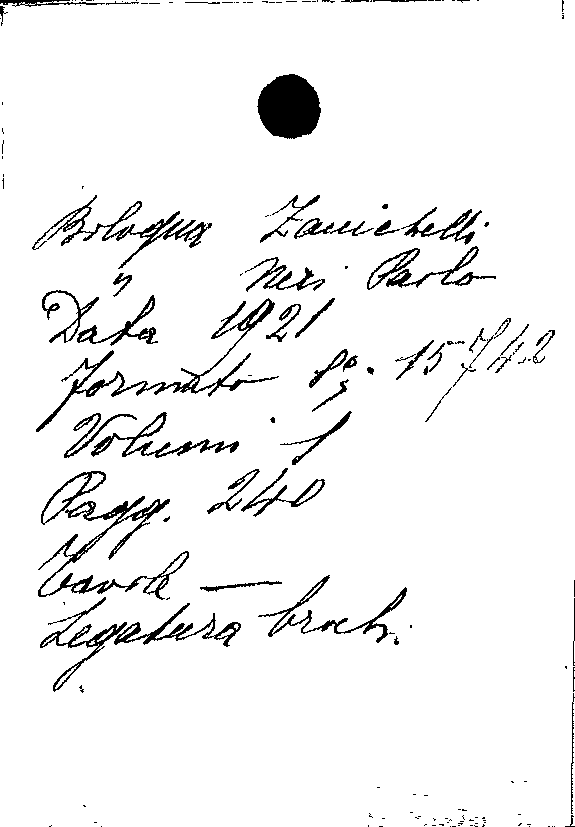 Bologna Zanichelli
" Neri Paolo
Data 1921
Formato 8º. 15742
Volumi 1
Pagg. 240
Tavole —
Legatura broch.